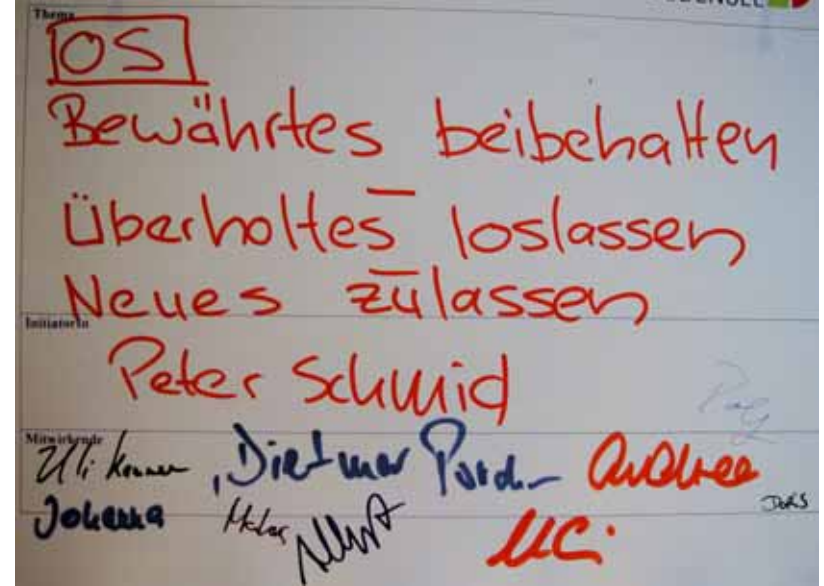 Thema
OS
Bewährtes beibehalten
-
Überholtes loslassen
-
Neues zulassen
InitiatorIn
Peter Schmid
Mitwirkende
Uli , Dietmar Andrea
Johanna Uli